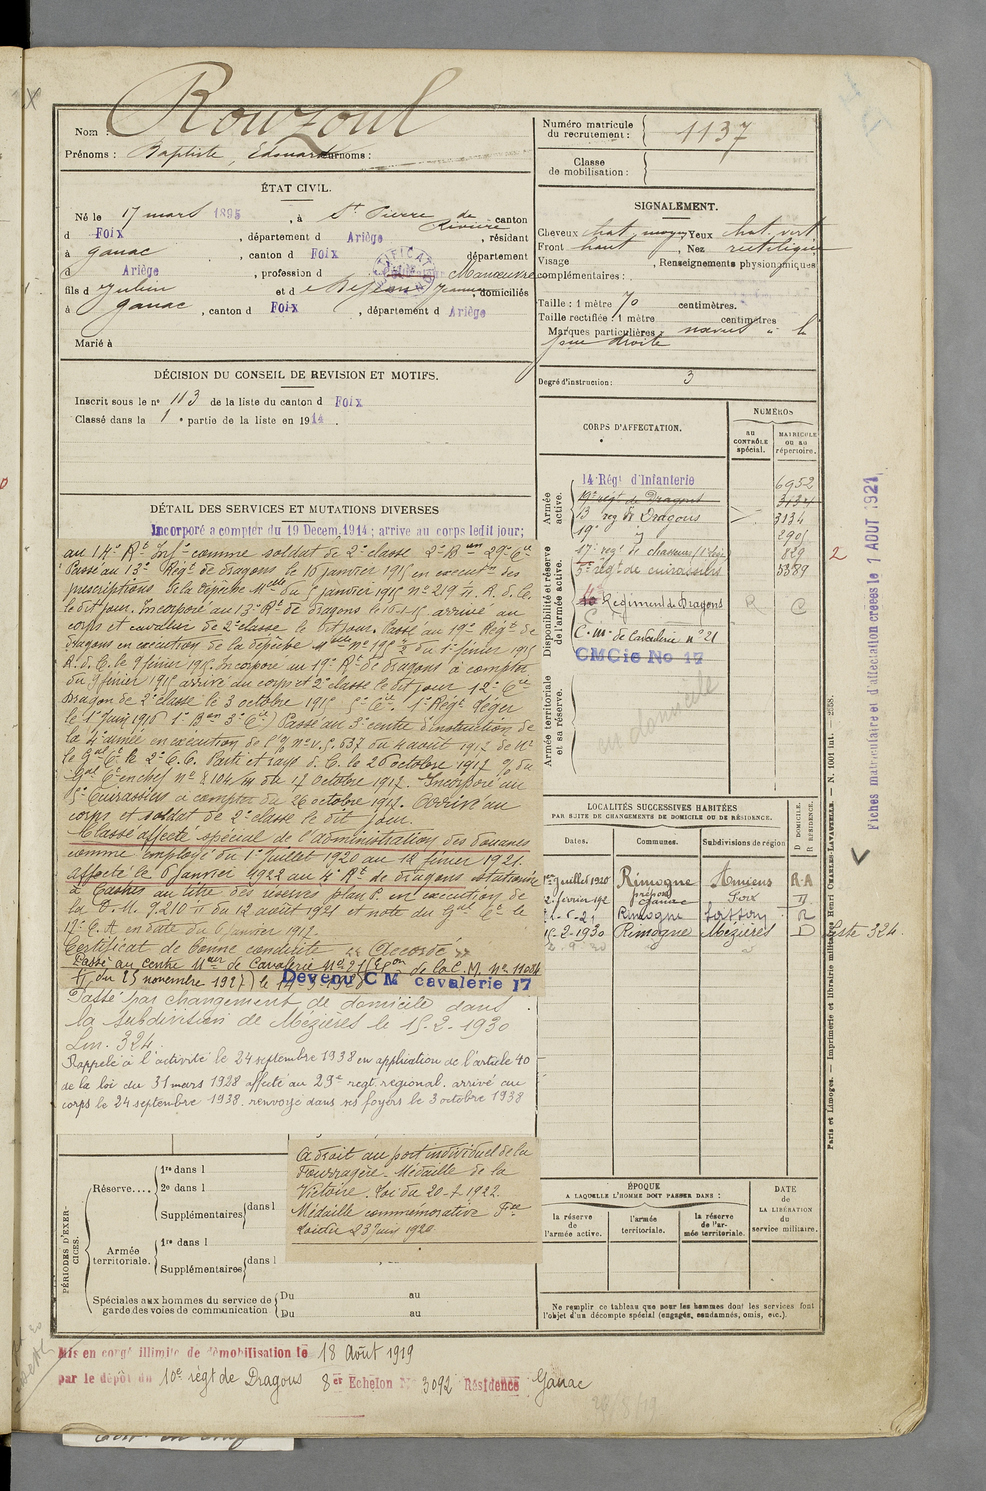 Rouzoul
Nom :
Prénoms : Baptiste, Edouard Surnoms :
Numéro matricule du recrutement : 1137
Classe de mobilisation :
ÉTAT CIVIL.
Né le 17 mars 1895, à St Pierre de Rivière canton
d Foix, département d Ariège, résidant
à Ganac, canton d Foix département
d Ariège, profession d Manœuvre
fils d Julien et d Jeanne, domiciliés
à Ganac, canton d Foix, département d Ariège
Marié à
SIGNALEMENT.
Cheveux chat. moyen Yeux chat. vert
Front haut, Nez rectiligne
Visage, Renseignements physionomiques
complémentaires :
Taille : 1 mètre 70 centimètres.
Taille rectifiée : 1 mètre centimètres
Marques particulières : naevus à la
joue droite
Degré d'instruction : 3
DÉCISION DU CONSEIL DE REVISION ET MOTIFS.
Inscrit sous le no 113 de la liste du canton d Foix
Classé dans la 1e partie de la liste en 1914.
DÉTAIL DES SERVICES ET MUTATIONS DIVERSES
Incorporé a compter du 19 Decem. 1914 ; arrive au corps ledit jour ;
au 14e Rt Infie comme soldat de 2e classe 2e Bon 29e Cie
Passé au 13e Régt de dragons le 10 janvier 1915 en exécution des
prescriptions de la dépêche Melle no 219 II. R. d. C.
le dit jour. Incorporé au 13e Rt de dragons le 10-1-15 arrivé au
corps et cavalier de 2e classe le dit jour. Passé au 19e Régt de
dragons en exécution de la dépêche Melle no 190 du 1er février 1915
R. d. C. le 9 février 1915. Incorporé au 19e Rt de dragons à compter
du 9 février 1915 arrivé au corps et 2e classe le dit jour 12e Cie
Dragon de 2e classe le 3 octobre 1915 5e Cie. 1er Régt léger
le 1er Juin 1916 (1er Bon 3e Cie) Passé au 3e centre d'instruction de
la 4e armée en exécution de l' no 537 du 4 août 1917 de Mr
le Gal Ct le 2e C. C. Parti et rayé d. C. le 26 octobre 1917
Gal Ct en chef no 8104/m du 17 octobre 1917. Incorporé au
5e Cuirassiers à compter du 26 octobre 1917. Arrivé au
corps et soldat de 2e classe le dit jour.
Classé affecté spécial de l'administration des douanes
comme employé du 1er juillet 1920 au 12 février 1921.
Affecté le 6 janvier 1922 au 4e Rt de dragons stationné
à Castres au titre des réserves plan P. en exécution de
la C. M. 9.210 II du 12 août 1921 et note du Gal Ct le
17e C. A en date du 6 janvier
Certificat de bonne conduite « Accordé »
Passé au centre Mser de Cavalerie No 21 de la C. M. no 11024
II du 25 novembre 1927) le
Devenu CM cavalerie 17
Passé par changement de domicile dans
la subdivision de Mézières le 15-2-1930
Lm. 324.
Rappelé à l'activité le 24 septembre 1938 en application de l'article 40
de la loi du 31 mars 1928 affecté au 29e regt régional. arrivé au
corps le 24 septembre 1938. renvoyé dans ses foyers le 3 octobre 1938
A droit au port individuel de la
Fourragère - Médaille de la
Victoire. Loi du 20-7-1922.
Médaille commemorative Fse
Loi du 23 Juin 1920
CORPS D'AFFECTATION.
NUMÉROS
au CONTRÔLE spécial.
MATRICULE ou au répertoire.
Armée active.
14 Régt d'Infanterie 6952
19e régt de Dragons 3134
13 reg de Dragons 3134
19e 2901
Disponibilité et réserve de l'armée active.
17e regt de chasseurs 829 2
5e régt de cuirassiers 5389
Régiment de Dragons R C
C. m. de Cavalerie no 21
CMCie No 17
Armée territoriale et sa réserve.
en domicile
Fiches matriculaire et d'affectation créées le 1 AOUT 1921
LOCALITÉS SUCCESSIVES HABITÉES
PAR SUITE DE CHANGEMENTS DE DOMICILE OU DE RÉSIDENCE.
Dates. Communes. Subdivisions de région D DOMICILE. R RÉSIDENCE.
1er Juillet 1920 Rimogne Amiens R-A
préposé
2 février 1922 Ganac Foix D
Rimogne R
15-2-1930 Rimogne Mézières D Liste 324.
PÉRIODES D'EXERCICES.
Réserve....
1re dans l
2e dans l
Supplémentaires dans l
Armée territoriale.
1re dans l
Supplémentaires dans l
Spéciales aux hommes du service de garde des voies de communication
Du au
Du au
ÉPOQUE
A LAQUELLE L'HOMME DOIT PASSER DANS :
la réserve de l'armée active.
l'armée territoriale.
la réserve de l'armée territoriale.
DATE de LA LIBÉRATION du service militaire.
Ne remplir ce tableau que pour les hommes dont les services font
l'objet d'un décompte spécial (engagés, condamnés, omis, etc.).
Paris et Limoges. — Imprimerie et librairie militaires Henri CHARLES-LAVAUZELLE. — N. 1001 int. — 2558.
Mis en congé illimité de démobilisation le 18 Août 1919
par le dépôt du 10e régt de Dragons 8er Echelon No 3092 Résidence Ganac